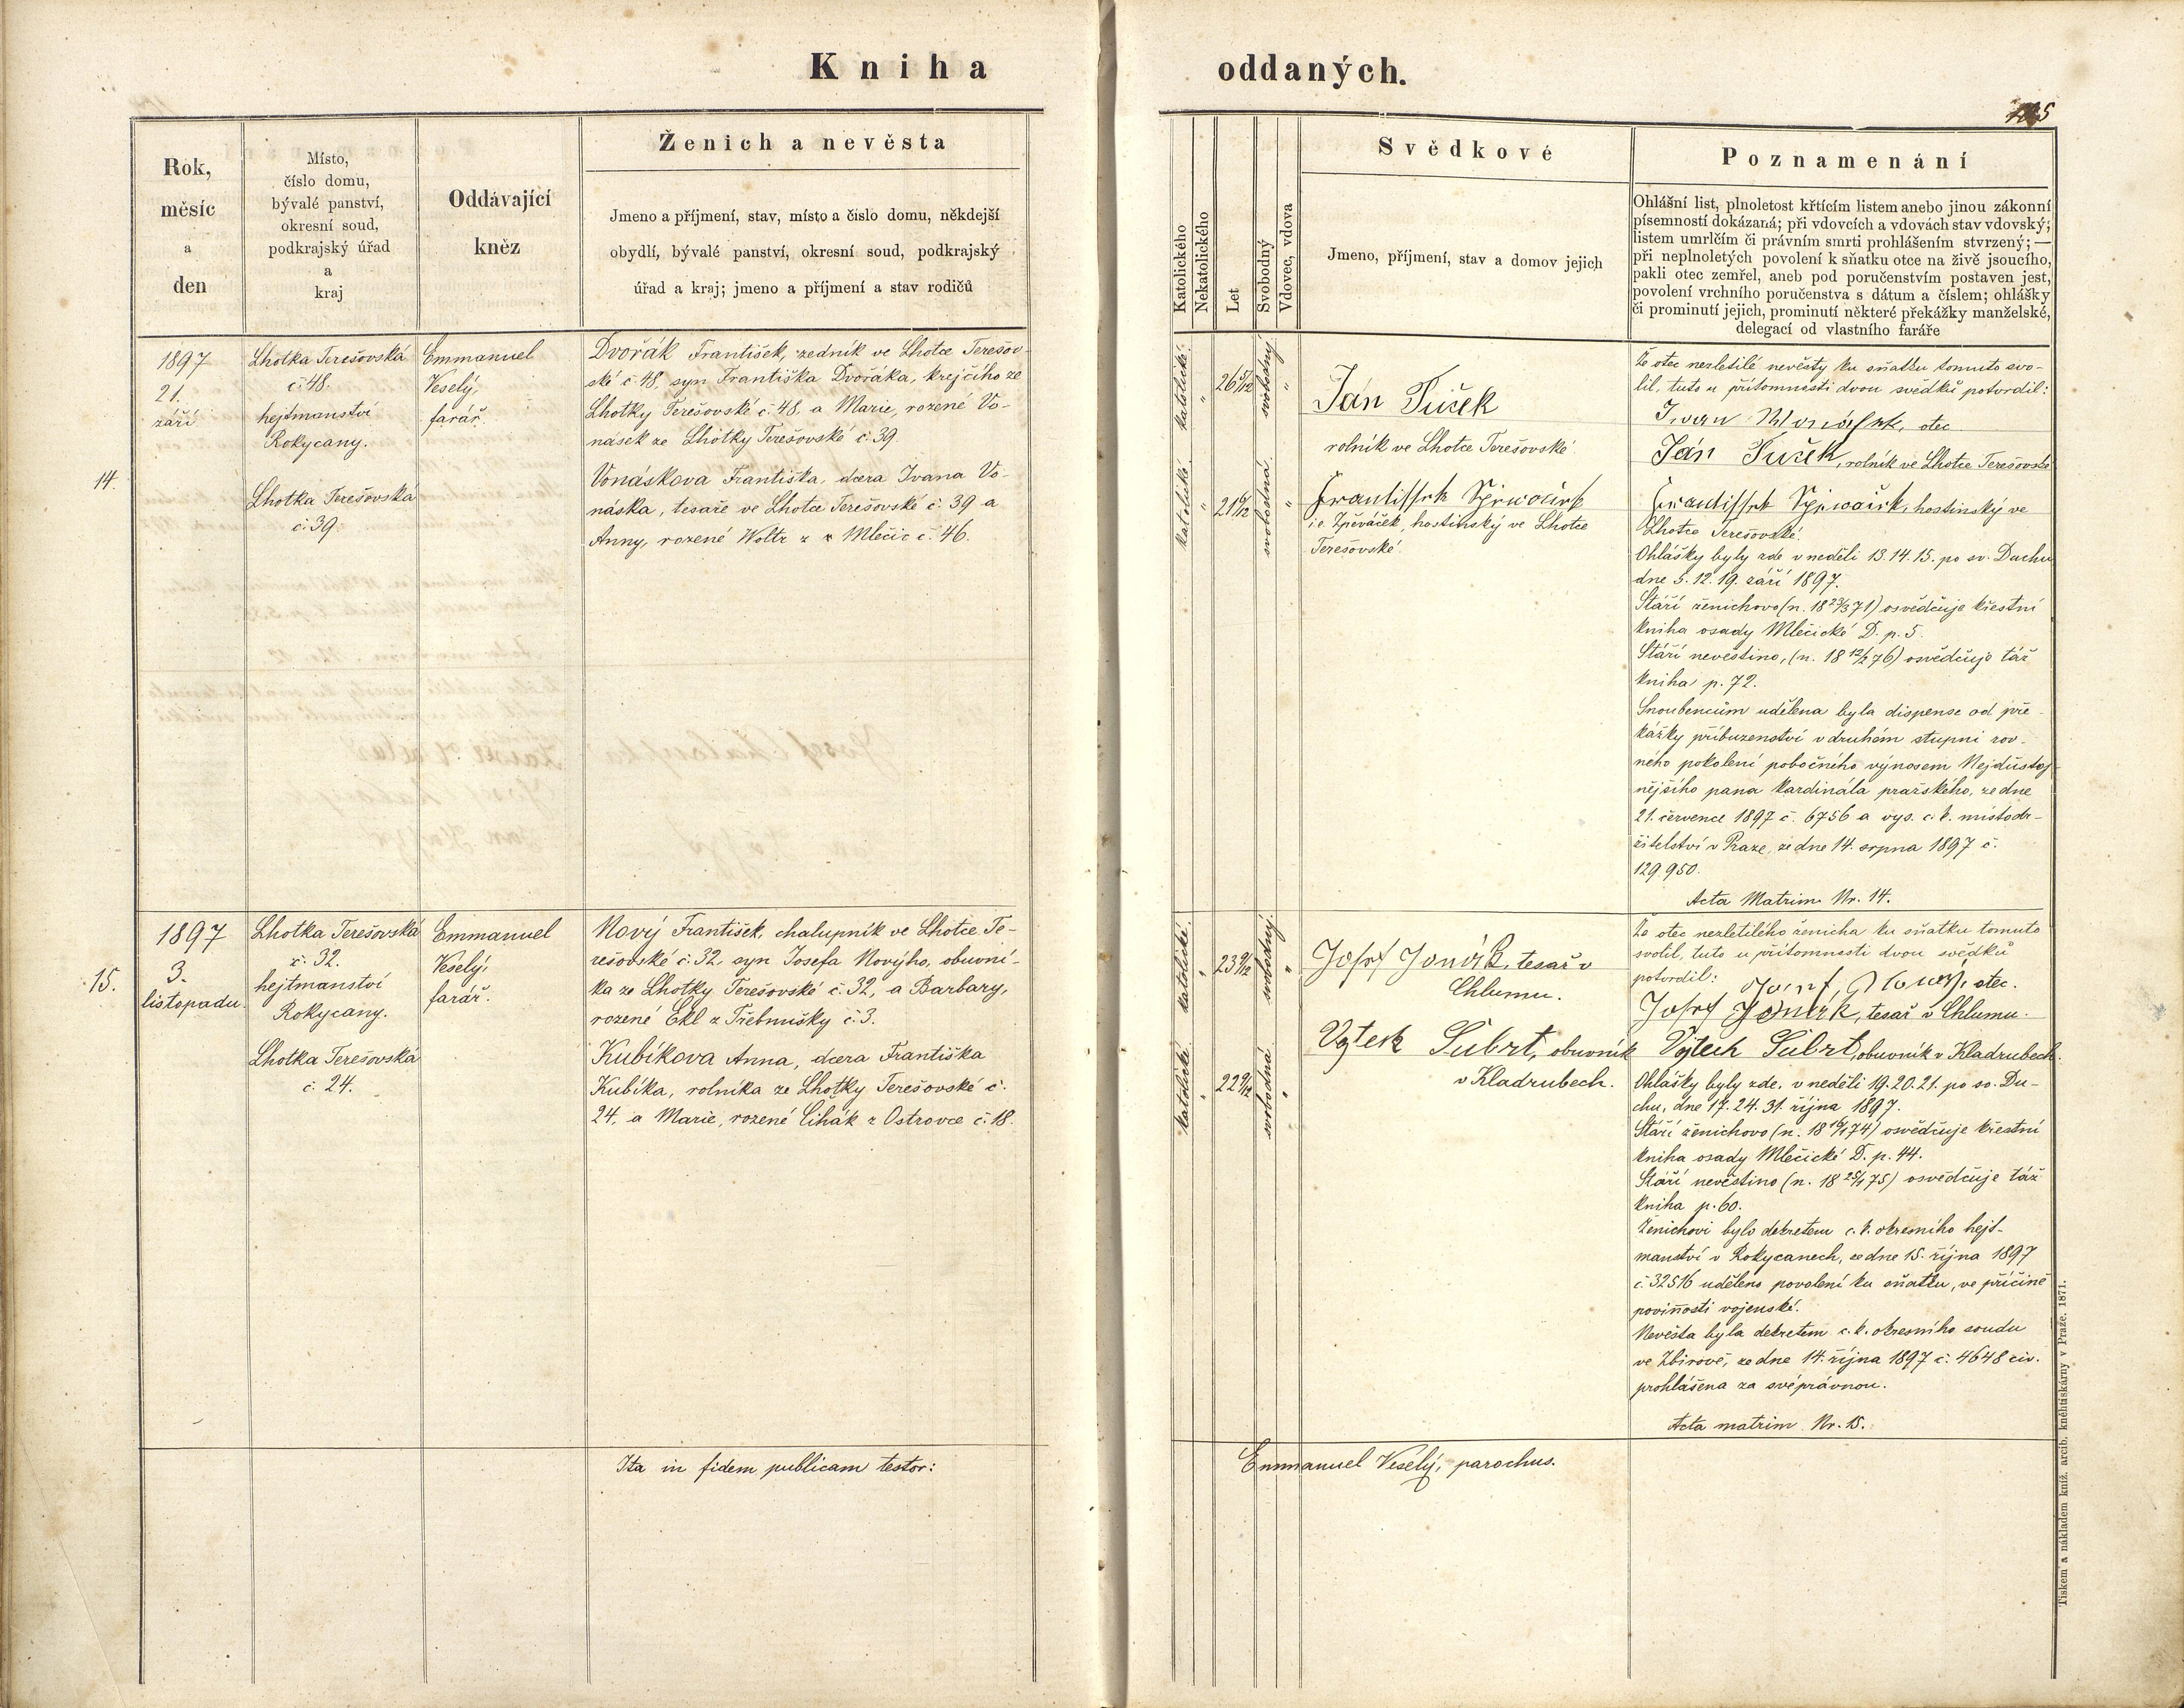 Kniha oddaných.
Rok,
měsíc
a
den
Místo,
číslo domu,
bývalé panství,
okresní soud,
podkrajský úřad
a
kraj
Oddávající
kněz
Ženich a nevěsta
Jmeno a příjmení, stav, místo a číslo domu, někdejší
obydlí, bývalé panství, okresní soud, podkrajský
úřad a kraj; jmeno a příjmení a stav rodičů
Katolického
Nekatolického
Let
Svobodný
Vdovec, vdova
Svědkové
Jmeno, příjmení, stav a domov jejich
Poznamenání
Ohlášní list, plnoletost křtícím listem anebo jinou zákonní
písemností dokázaná; při vdovcích a vdovách stav vdovský;
listem umrlčím či právním smrti prohlášením stvrzený; —
při neplnoletých povolení k sňatku otce na živě jsoucího,
pakli otec zemřel, aneb pod poručenstvím postaven jest,
povolení vrchního poručenstva s dátum a číslem; ohlášky
či prominutí jejich, prominutí některé překážky manželské,
delegací od vlastního faráře
14.
1897
21.
září
Lhotka Terešovská
č. 48.
hejtmanství
Rokycany.
Lhotka Terešovská
č. 39.
Emmanuel
Veselý,
farář.
Dvořák František, zedník ve Lhotce Terešov-
ské č. 48, syn Františka Dvořáka, krejčího ze
Lhotky Terešovské č. 48, a Marie, rozené Vo-
násek ze Lhotky Terešovské č. 39.
Vonáskova Františka, dcera Ivana Vo-
náska, tesaře ve Lhotce Terešovské č. 39 a
Anny, rozené Woltr z Mlečic č. 46.
katolické " 26 5/12 svobodný "
katolické " 21 6/12 svobodná "
Ján Tuček
rolník ve Lhotce Terešovské.
Frantissek
i. e. Zpěváček, hostinský ve Lhotce
Terešovské.
Že otec nezletilé nevěsty ku sňatku tomuto svo-
lil, tuto u přítomnosti dvou svědků potvrdil:
Ivan otec.
Ján Tuček, rolník ve Lhotce Terešovské
Frantissek hostinský ve
Lhotce Terešovské.
Ohlášky byly zde v neděli 13. 14. 15. po sv. Duchu
dne 5. 12. 19. září 1897.
Stáří ženichovo (n. 18 23/3 71) osvědčuje křestní
kniha osady Mlečické D. p. 5.
Stáří nevěstino, (n. 18 12/2 76) osvědčuje táž
kniha p. 72.
Snoubencům udělena byla dispense od pře-
kážky příbuzenství v druhém stupni rov-
ného pokolení pobočného výnosem Nejdůstoj-
nějšího pana Kardinála pražského, ze dne
21. července 1897 č. 6756 a vys. c. k. místodr-
žitelství v Praze, ze dne 14. srpna 1897 č.
129.950.
Acta Matrim. Nr. 14.
15.
1897
3.
listopadu.
Lhotka Terešovská
č. 32.
hejtmanství
Rokycany.
Lhotka Terešovská
č. 24.
Emmanuel
Veselý,
farář.
Nový František, chalupník ve Lhotce Te-
rešovské č. 32, syn Josefa Nového, obuvní-
ka ze Lhotky Terešovské č. 32, a Barbary,
rozené Ekl z Třebnušky č. 3.
Kubíkova Anna, dcera Františka
Kubíka, rolníka ze Lhotky Terešovské č.
24, a Marie, rozené Cihák z Ostrovce č. 18.
katolické " 23 9/12 svobodný "
katolické " 22 9/12 svobodná "
Josef tesař v
Chlumu.
Vojtek Šubrt, obuvník
v Kladrubech.
Že otec nezletilého ženicha ku sňatku tomuto
svolil, tuto u přítomnosti dvou svědků
potvrdil: Josef Nowy, otec.
Josef tesař v Chlumu.
Vojtech Šubrt, obuvník v Kladrubech.
Ohlášky byly zde, v neděli 19. 20. 21. po sv. Du-
chu, dne 17. 24. 31. října 1897.
Stáří ženichovo (n. 18 16/1 74) osvědčuje křestní
kniha osady Mlečické D. p. 44.
Stáří nevěstino (n. 18 25/1 75) osvědčuje táž
kniha p. 60.
Ženichovi bylo dekretem c. k. okresního hejt-
manství v Rokycanech, ze dne 15. října 1897
č. 32516 uděleno povolení ku sňatku, ve příčině
povinnosti vojenské.
Nevěsta byla dekretem c. k. okresního soudu
ve Zbirově, ze dne 14. října 1897 č. 4648 civ.
prohlášena za svéprávnou.
Acta matrim. Nr. 15.
Ita in fidem publicam testor: Emmanuel Veselý, parochus.
Tiskem a nákladem kníž. arcib. kněhtiskárny v Praze. 1871.